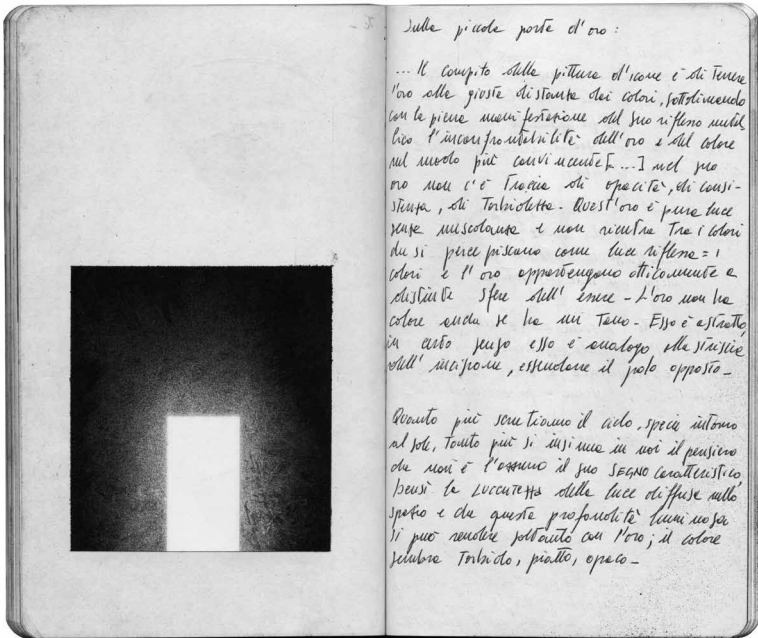 Sulla piccola porta d'oro :
... Il compito della pittura d'icone è di tenere
l'oro alla giusta distanza dai colori, sottolineando
con la piena manifestazione del suo riflesso metal
lico l'inconfrontabilità dell'oro e del colore
nel modo più convincente [...] nel suo
oro non c'è traccia di opacità, di consi-
stenza, di torbidezza. Quest'oro è pura luce
senza mescolanza e non rientra tra i colori
che si percepiscono come luce riflessa = i
colori e l'oro appartengono otticamente a
distinte sfere dell'essere - L'oro non ha
colore anche se ha un Tono - Esso è astratto,
in certo senso esso è analogo alla striscia
dell'incisione, essendone il polo opposto -
Quanto più scrutiamo il cielo, specie intorno
al sole, tanto più si insinua in noi il pensiero
che non è l'azzurro il suo SEGNO caratteristico,
bensì la LUCENTEZZA della luce diffusa nello
spazio e che questa profondità luminosa
si può rendere soltanto con l'oro; il colore
sembra Torbido, piatto, opaco -